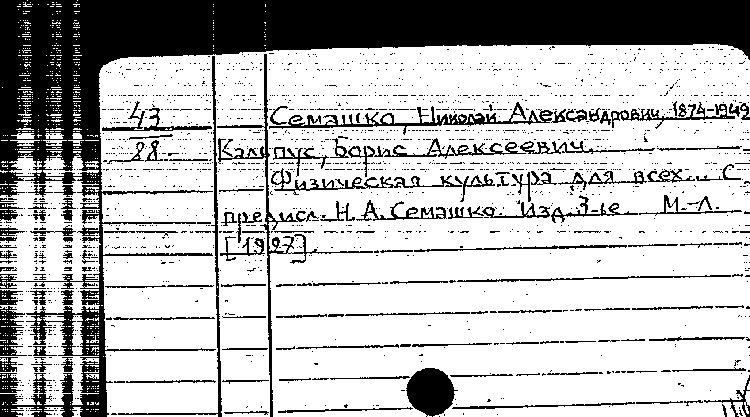 43 Семашко, Николай Александрович, 1874-1949
88. Кальпус, Борис Алексеевич.
Физическая культура для всех... С
предисл. Н. А. Семашко. Изд. 3-ье. М.-Л.
[1927].